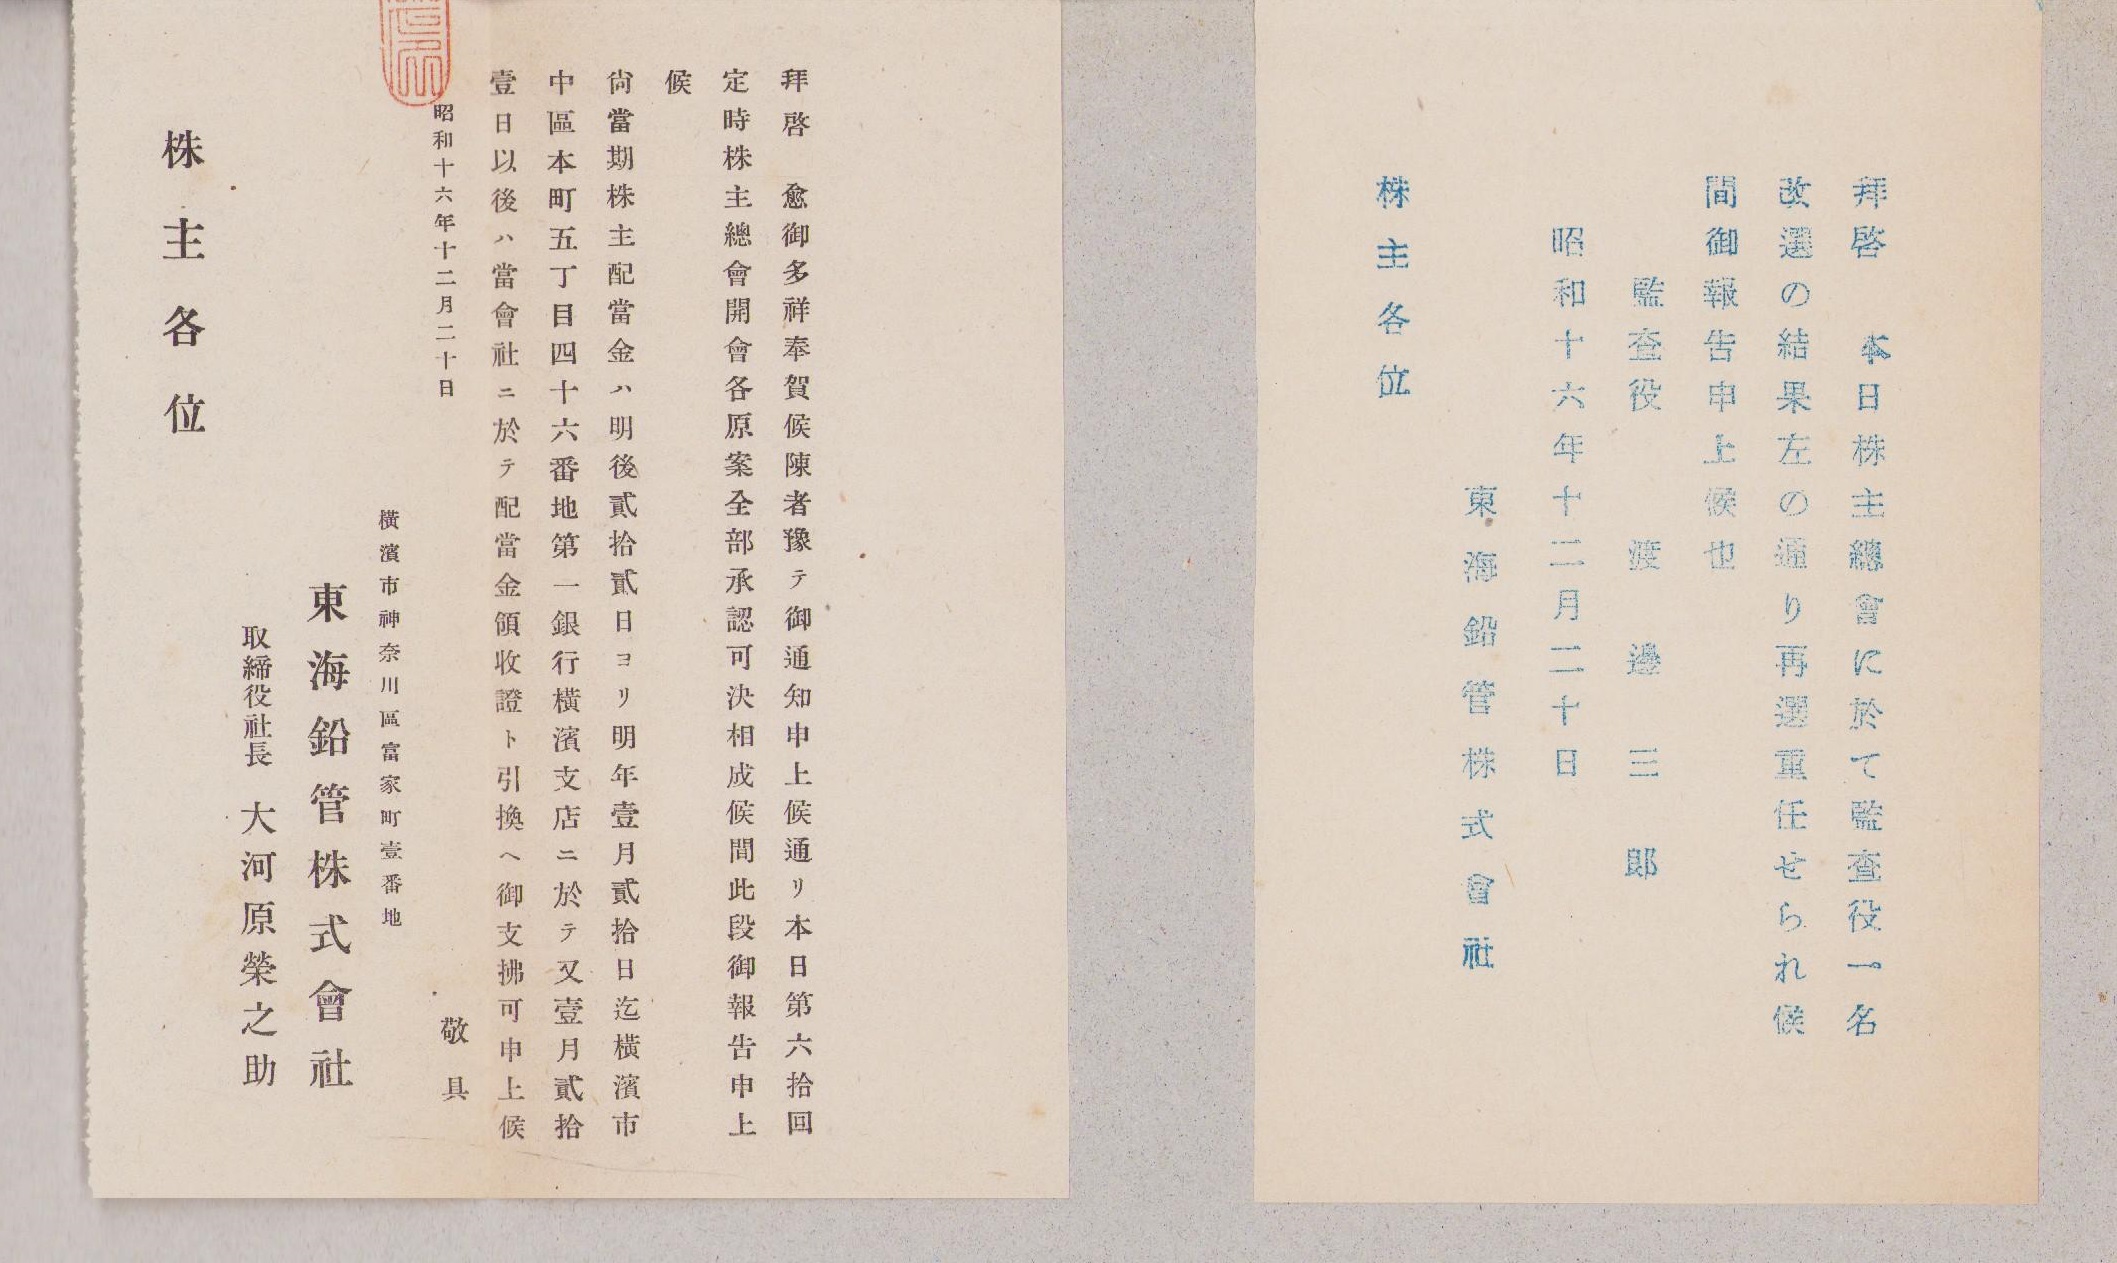 拜啓　本日株主總會に於て監査役一名
改選の結果左の通り再選重任せられ候
間御報告申上候也
監査役　渡邊三郎
昭和十六年十二月二十日
東海鉛管株式會社
株主各位
拜啓　愈御多祥奉賀候陳者豫テ御通知申上候通リ本日第六拾回
定時株主總會開會各原案全部承認可決相成候間此段御報告申上
候
尙當期株主配當金ハ明後貳拾貳日ヨリ明年壹月貳拾日迄橫濱市
中區本町五丁目四十六番地第一銀行橫濱支店ニ於テ又壹月貳拾
壹日以後ハ當會社ニ於テ配當金領收證ト引換ヘ御支拂可申上候
敬具
昭和十六年十二月二十日
橫濱市神奈川區富家町壹番地
東海鉛管株式會社
取締役社長　大河原榮之助
株主各位